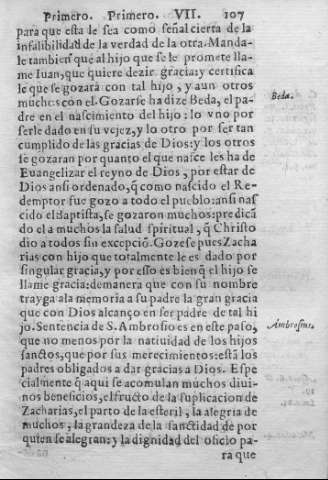 Primero. Primero. VII. 107
para que esta le sea como señal cierta de la
infalibilidad de la verdad de la otra. Manda-
le tambien que al hijo que se le promete lla-
me Iuan, que quiere dezir gracia: y certifica
le que se gozarà con tal hijo, y aun otros
muchos con el. Gozarse ha dize Beda, el pa-
dre en el nascimiento del hijo: lo vno por
serle dado en su vejez, y lo otro por ser tan
cumplido de las gracias de Dios: y los otros
se gozaran por quanto el que nasce les ha de
Euangelizar el reyno de Dios, por estar de
Dios ansi ordenado, q̃ como nascido el Re-
demptor fue gozo a todo el pueblo: ansi nas
cido el Baptista, se gozaron muchos: predicã
do el a muchos la salud spiritual, q̃ Christo
dio a todos sin excepciõ. Gozese pues Zacha
rias con hijo que totalmente le es dado por
singular gracia, y por esso es bien q̃ el hijo se
llame gracia: demanera que con su nombre
trayga ala memoria a su padre la gran gracia
que con Dios alcanço en ser padre de tal hi
jo. Sentencia de S. Ambrosio es en este paso,
que no menos por la natiuidad de los hijos
sanctos, que por sus merecimientos: estã los
padres obligados a dar gracias a Dios. Espe
cialmente q̃ aqui se acomulan muchos diui-
nos beneficios, el fructo de la suplicacion de
Zacharias, el parto de la esteril, la alegria de
muchos, la grandeza de la sanctidad de por
quien se alegran: y la dignidad del oficio pa-
ra que
Beda.
Ambrosius.